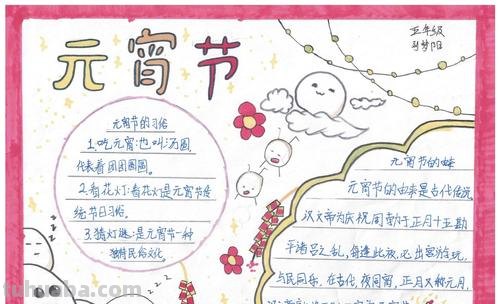 元宵节
五年级
元宵节的习俗
1.吃元宵:也叫汤圆,
代表着团团圆圆。
2.看花灯:看花灯是元宵节传
统节日习俗。
3.猜灯谜:是元宵节一种
独特民俗文化
元宵节的由来
元宵节的由来是古代传说,
汉文帝为庆祝周勃于正月十五勘
平诸吕之乱,每逢此夜,必出宫游玩,
与民同乐,在古代,夜同宵,正月又称元月,
tuhuaha.com